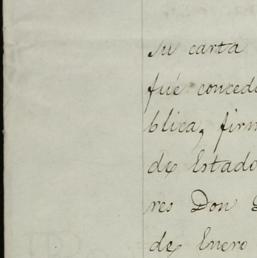 Su carta
fué conced
blica, firm
de Estado
res Don
de Enero